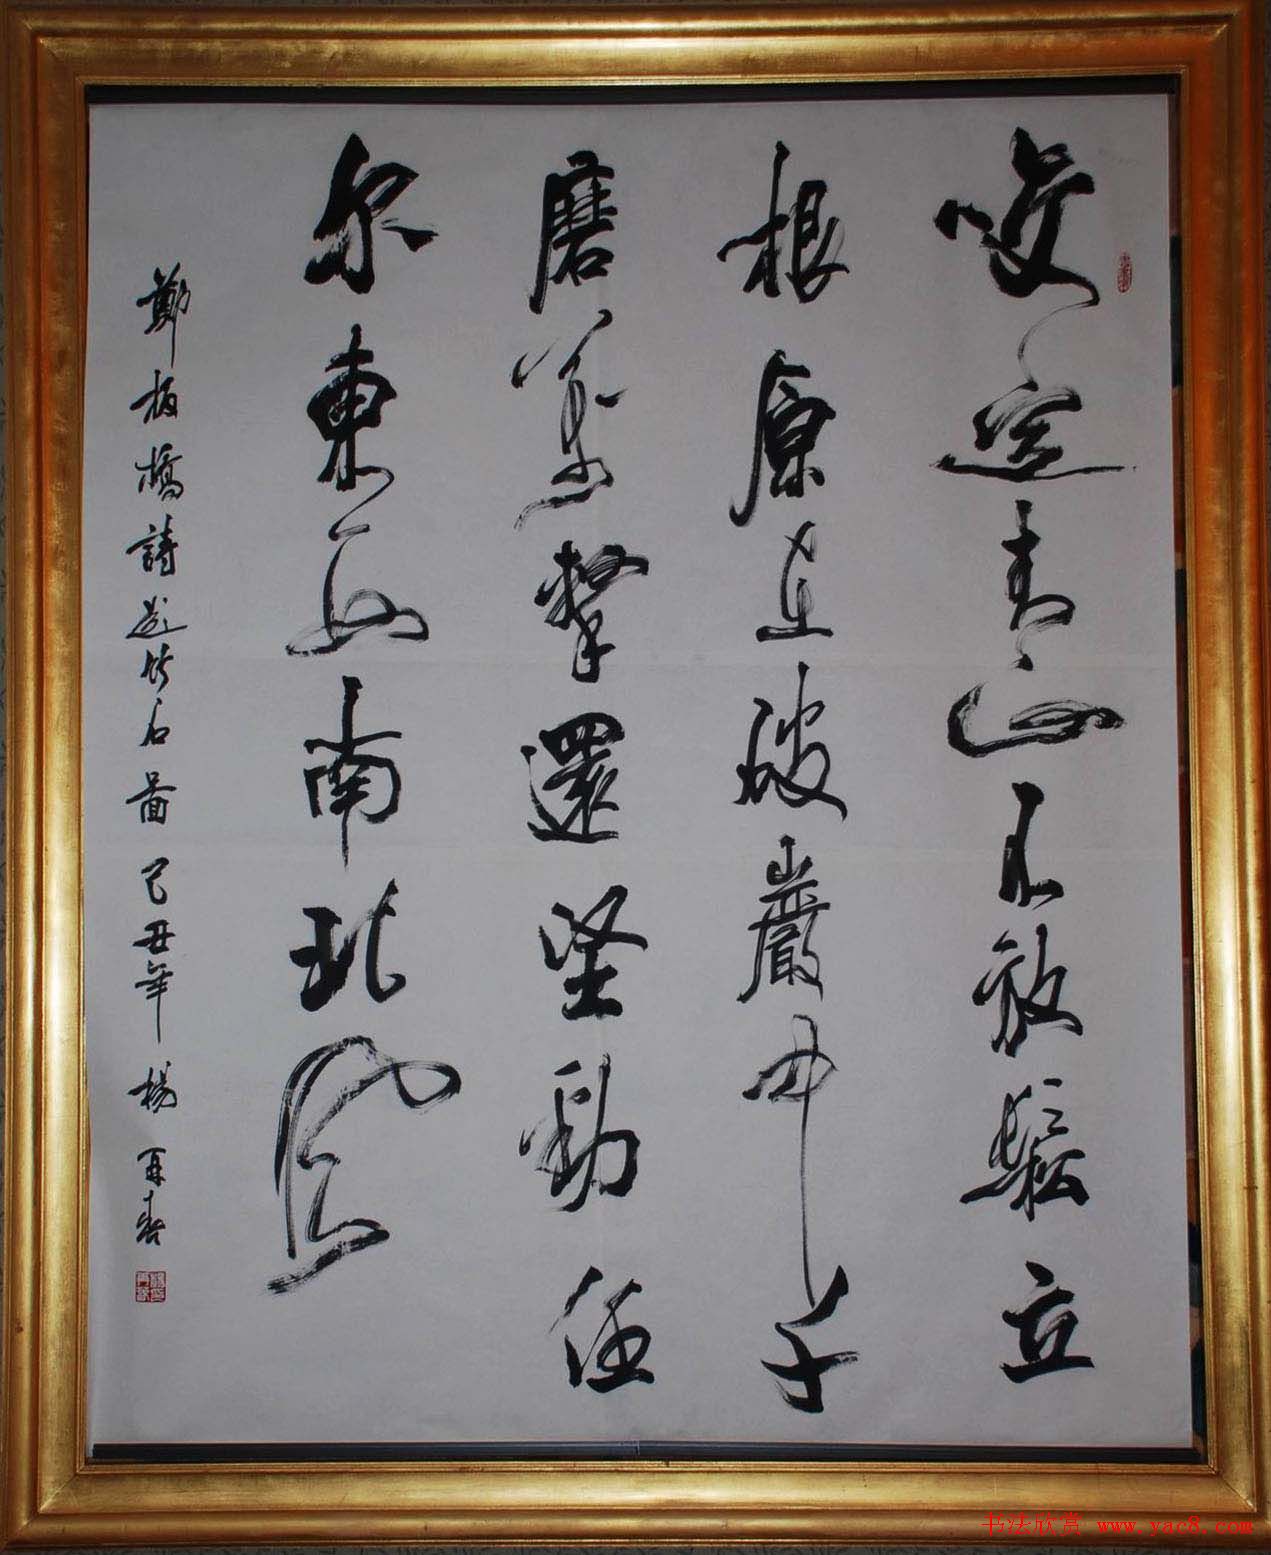 咬定青山不放鬆立
根原在破巖中千
磨萬擊還堅勁任
尔東西南北風
鄭板橋詩題竹石圖己丑年楊再春
书法欣赏 www.yac8.com